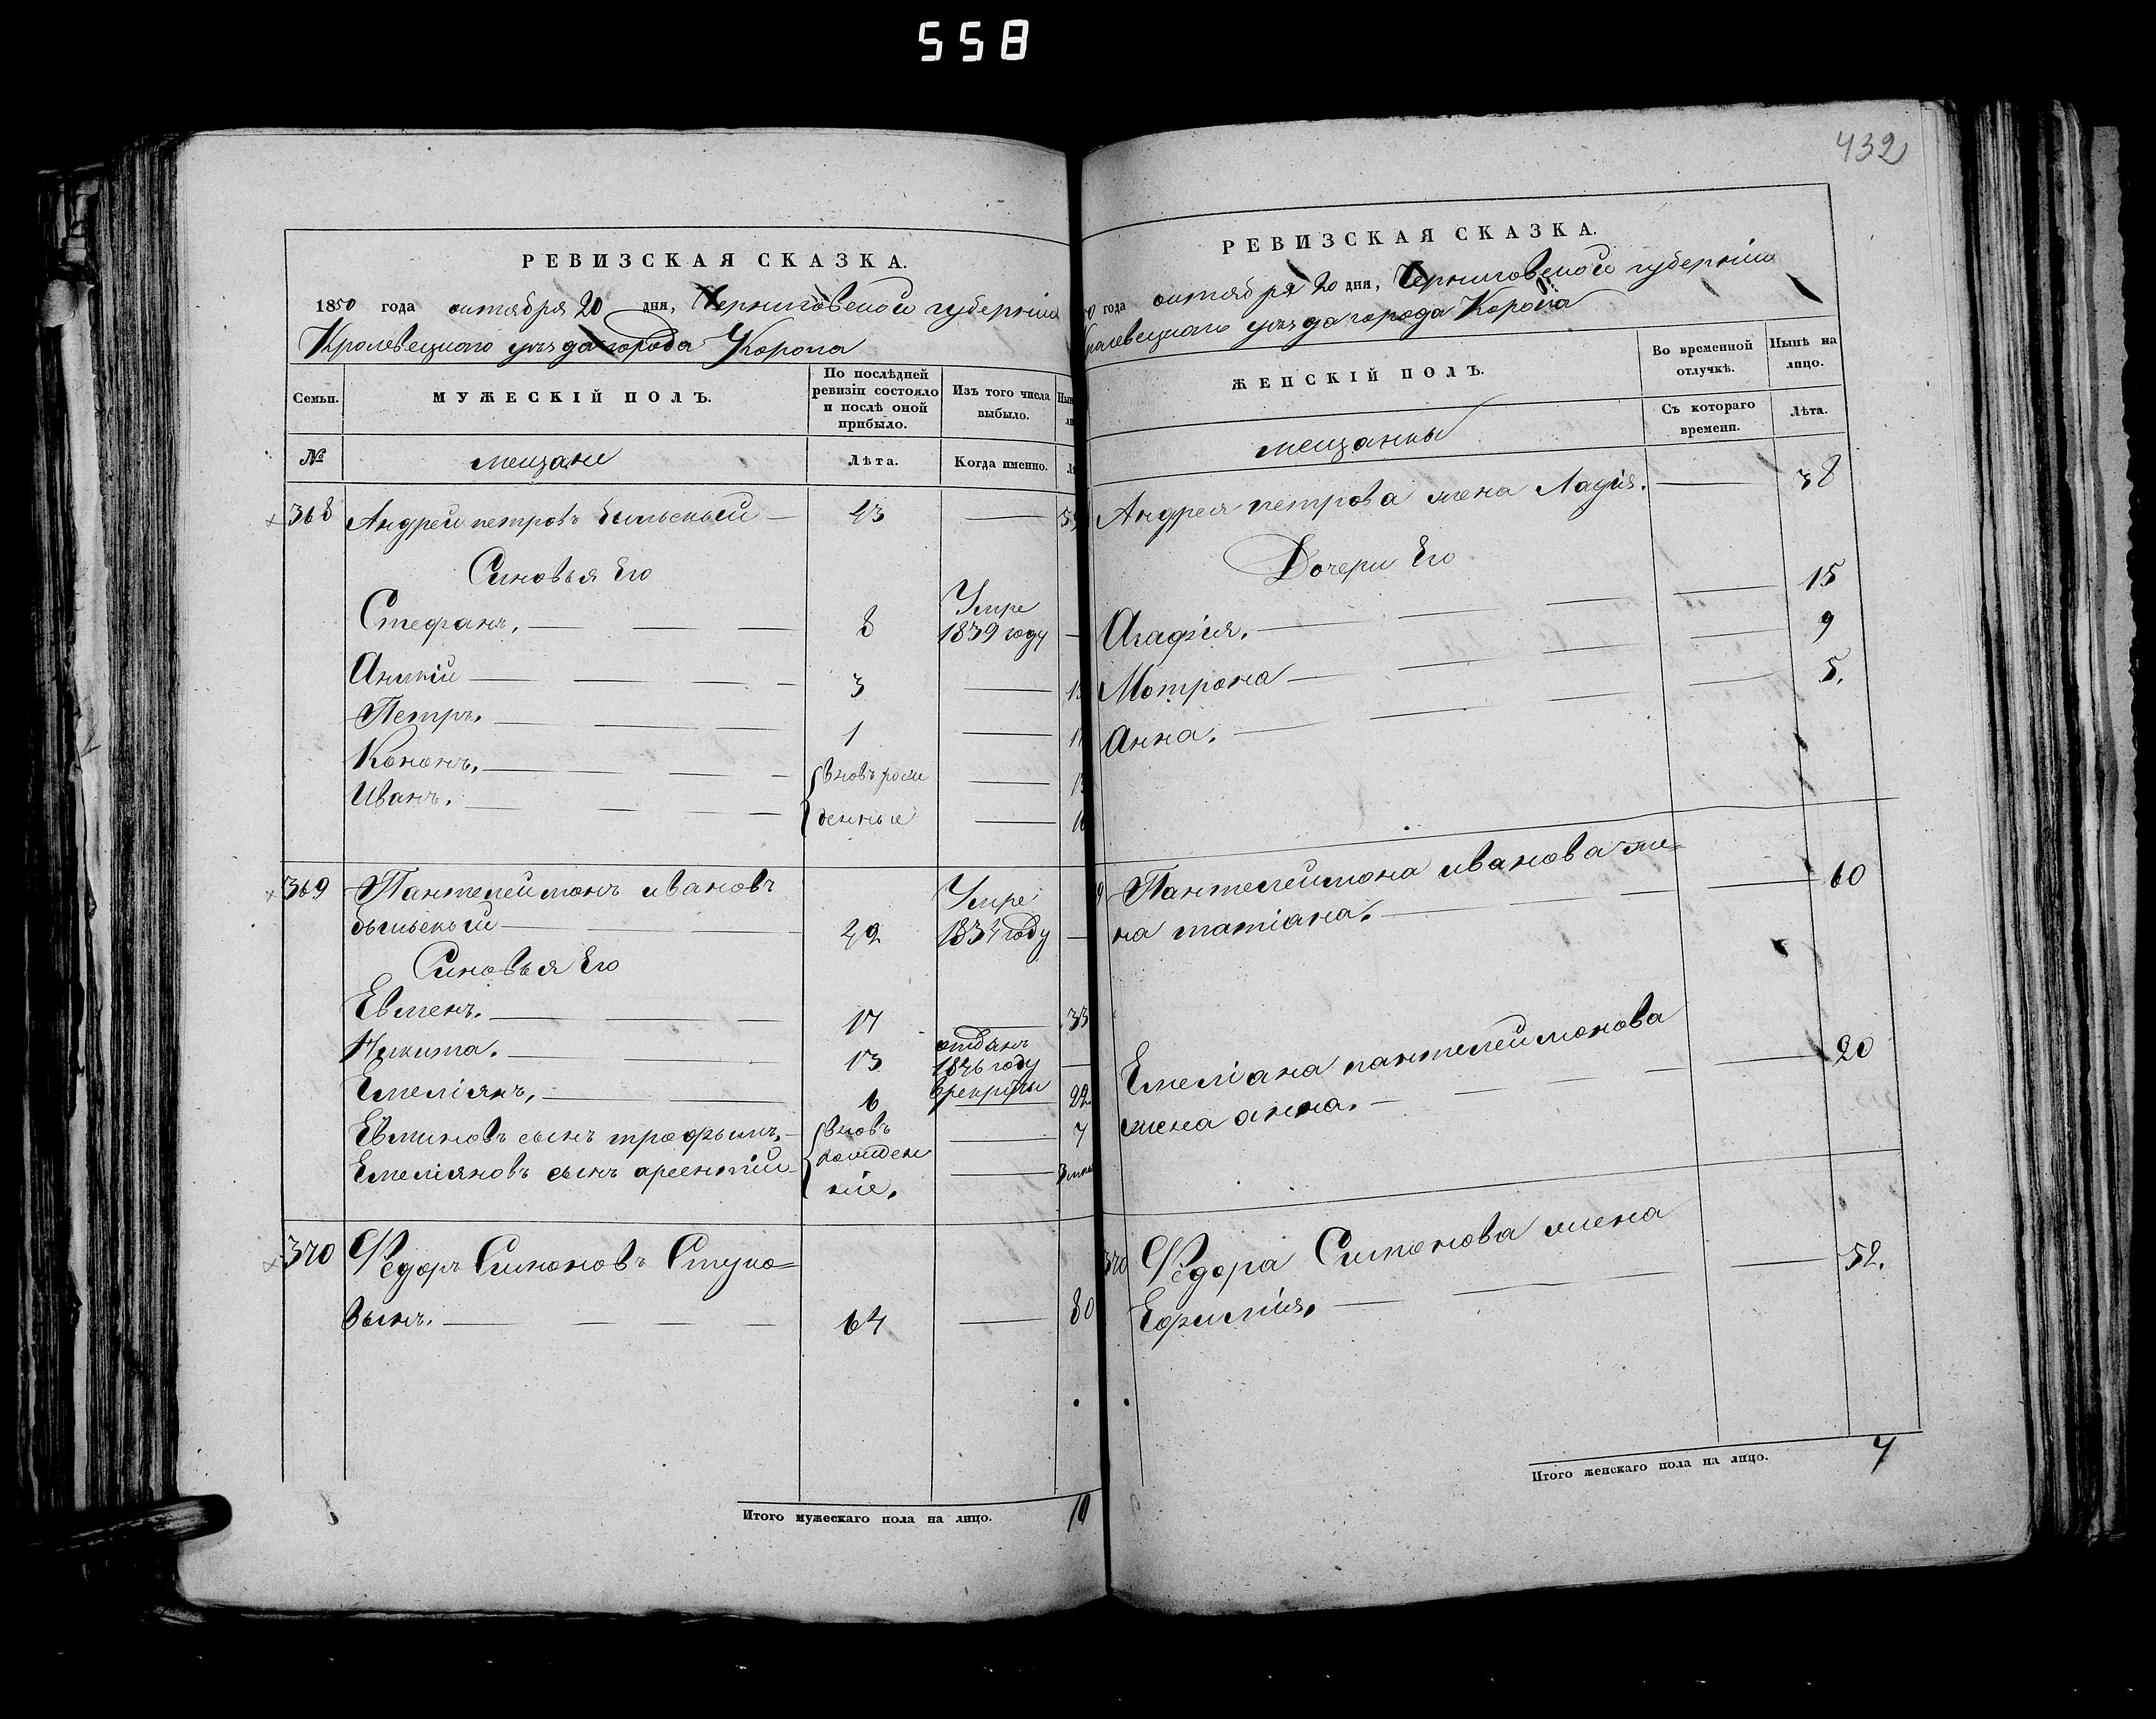 558
432
РЕВИЗСКАЯ СКАЗКА.
1850 года октября 20 дня, Черниговской губерніи
Кролевецкого уезда города Коропа
Семьи.
МУЖЕСКІЙ ПОЛЪ.
По послѣдней ревизіи состояло и послѣ оной прибыло.
Изъ того числа выбыло.
№
мещане
Лѣта.
Когда именно.
368 Андрей петровъ 43
Синовья Его
Стефанъ. 8 Умре 1839 году
Аникій 3
Петръ. 1
Кононъ. вновь рож
Иванъ. денные
369 Пантелеймонъ ивановъ
49 Умре 1834 году
Синовья Его
Евменъ. 17 33
Никита. 13 отданъ 1846 году в рекруты
Емеліянъ. 6 22
Евминовъ сынъ трофымъ. вновь 7
Емеліяновъ сынъ арсентій рожден
ніе.
370 Федоръ Симоновъ Ступа=
64 80
Итого мужескаго пола на лицо. 10
РЕВИЗСКАЯ СКАЗКА.
года октября 20 дня, Черниговской губерніи
уезда города Коропа
ЖЕНСКІЙ ПОЛЪ.
Во временной отлучкѣ.
Нынѣ на лицо.
Съ котораго времени.
Лѣта.
мещанки
Андрея петрова жена 38
Дочери Его
Агафія. 15
Мотрона 9
Анна. 5.
Пантелеймона иванова же=
на татіана. 60
Емеліана пантелеймонова
жена анна. 20
370 Федора Симонова жена
Ефимія. 52.
Итого женскаго пола на лицо. 7